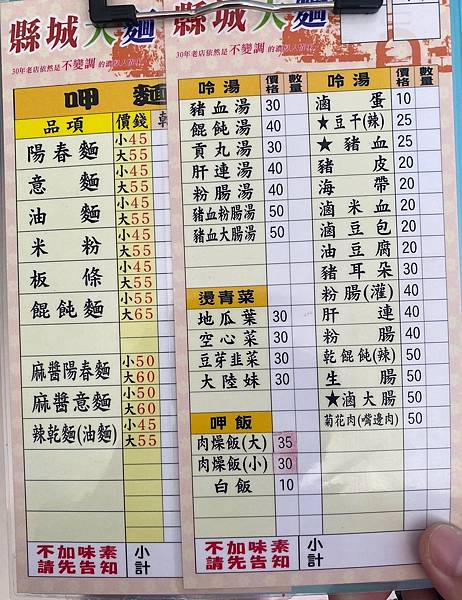 縣城大麵
30年老店依然是 不變調 的
呷 麵
品項 價錢
陽春麵 小45 大55
意麵 小45 大55
油麵 小45 大55
米粉 小45 大55
板條 小45 大55
餛飩麵 小55 大65
麻醬陽春麵 小50 大60
麻醬意麵 小50 大60
辣乾麵(油麵) 小45 大55
不加味素
請先告知
小計
縣城大麵
30年老店依然是 不變調 的
呤湯 價格 數量
豬血湯 30
餛飩湯 40
貢丸湯 30
肝連湯 40
粉腸湯 40
豬血粉腸湯 50
豬血大腸湯 50
燙青菜
地瓜葉 30
空心菜 30
豆芽韭菜 30
大陸妹 30
呷飯
肉燥飯(大) 35
肉燥飯(小) 30
白飯 10
不加味素
請先告知
呤湯 價格 數量
滷蛋 10
★豆干(辣) 25
★豬血 25
豬皮 20
海帶 20
滷米血 20
滷豆包 20
油豆腐 20
豬耳朵 30
粉腸(灌) 40
肝連 40
粉腸 40
乾餛飩(辣) 50
生腸 50
★滷大腸 50
菊花肉(嘴邊肉) 50
小計